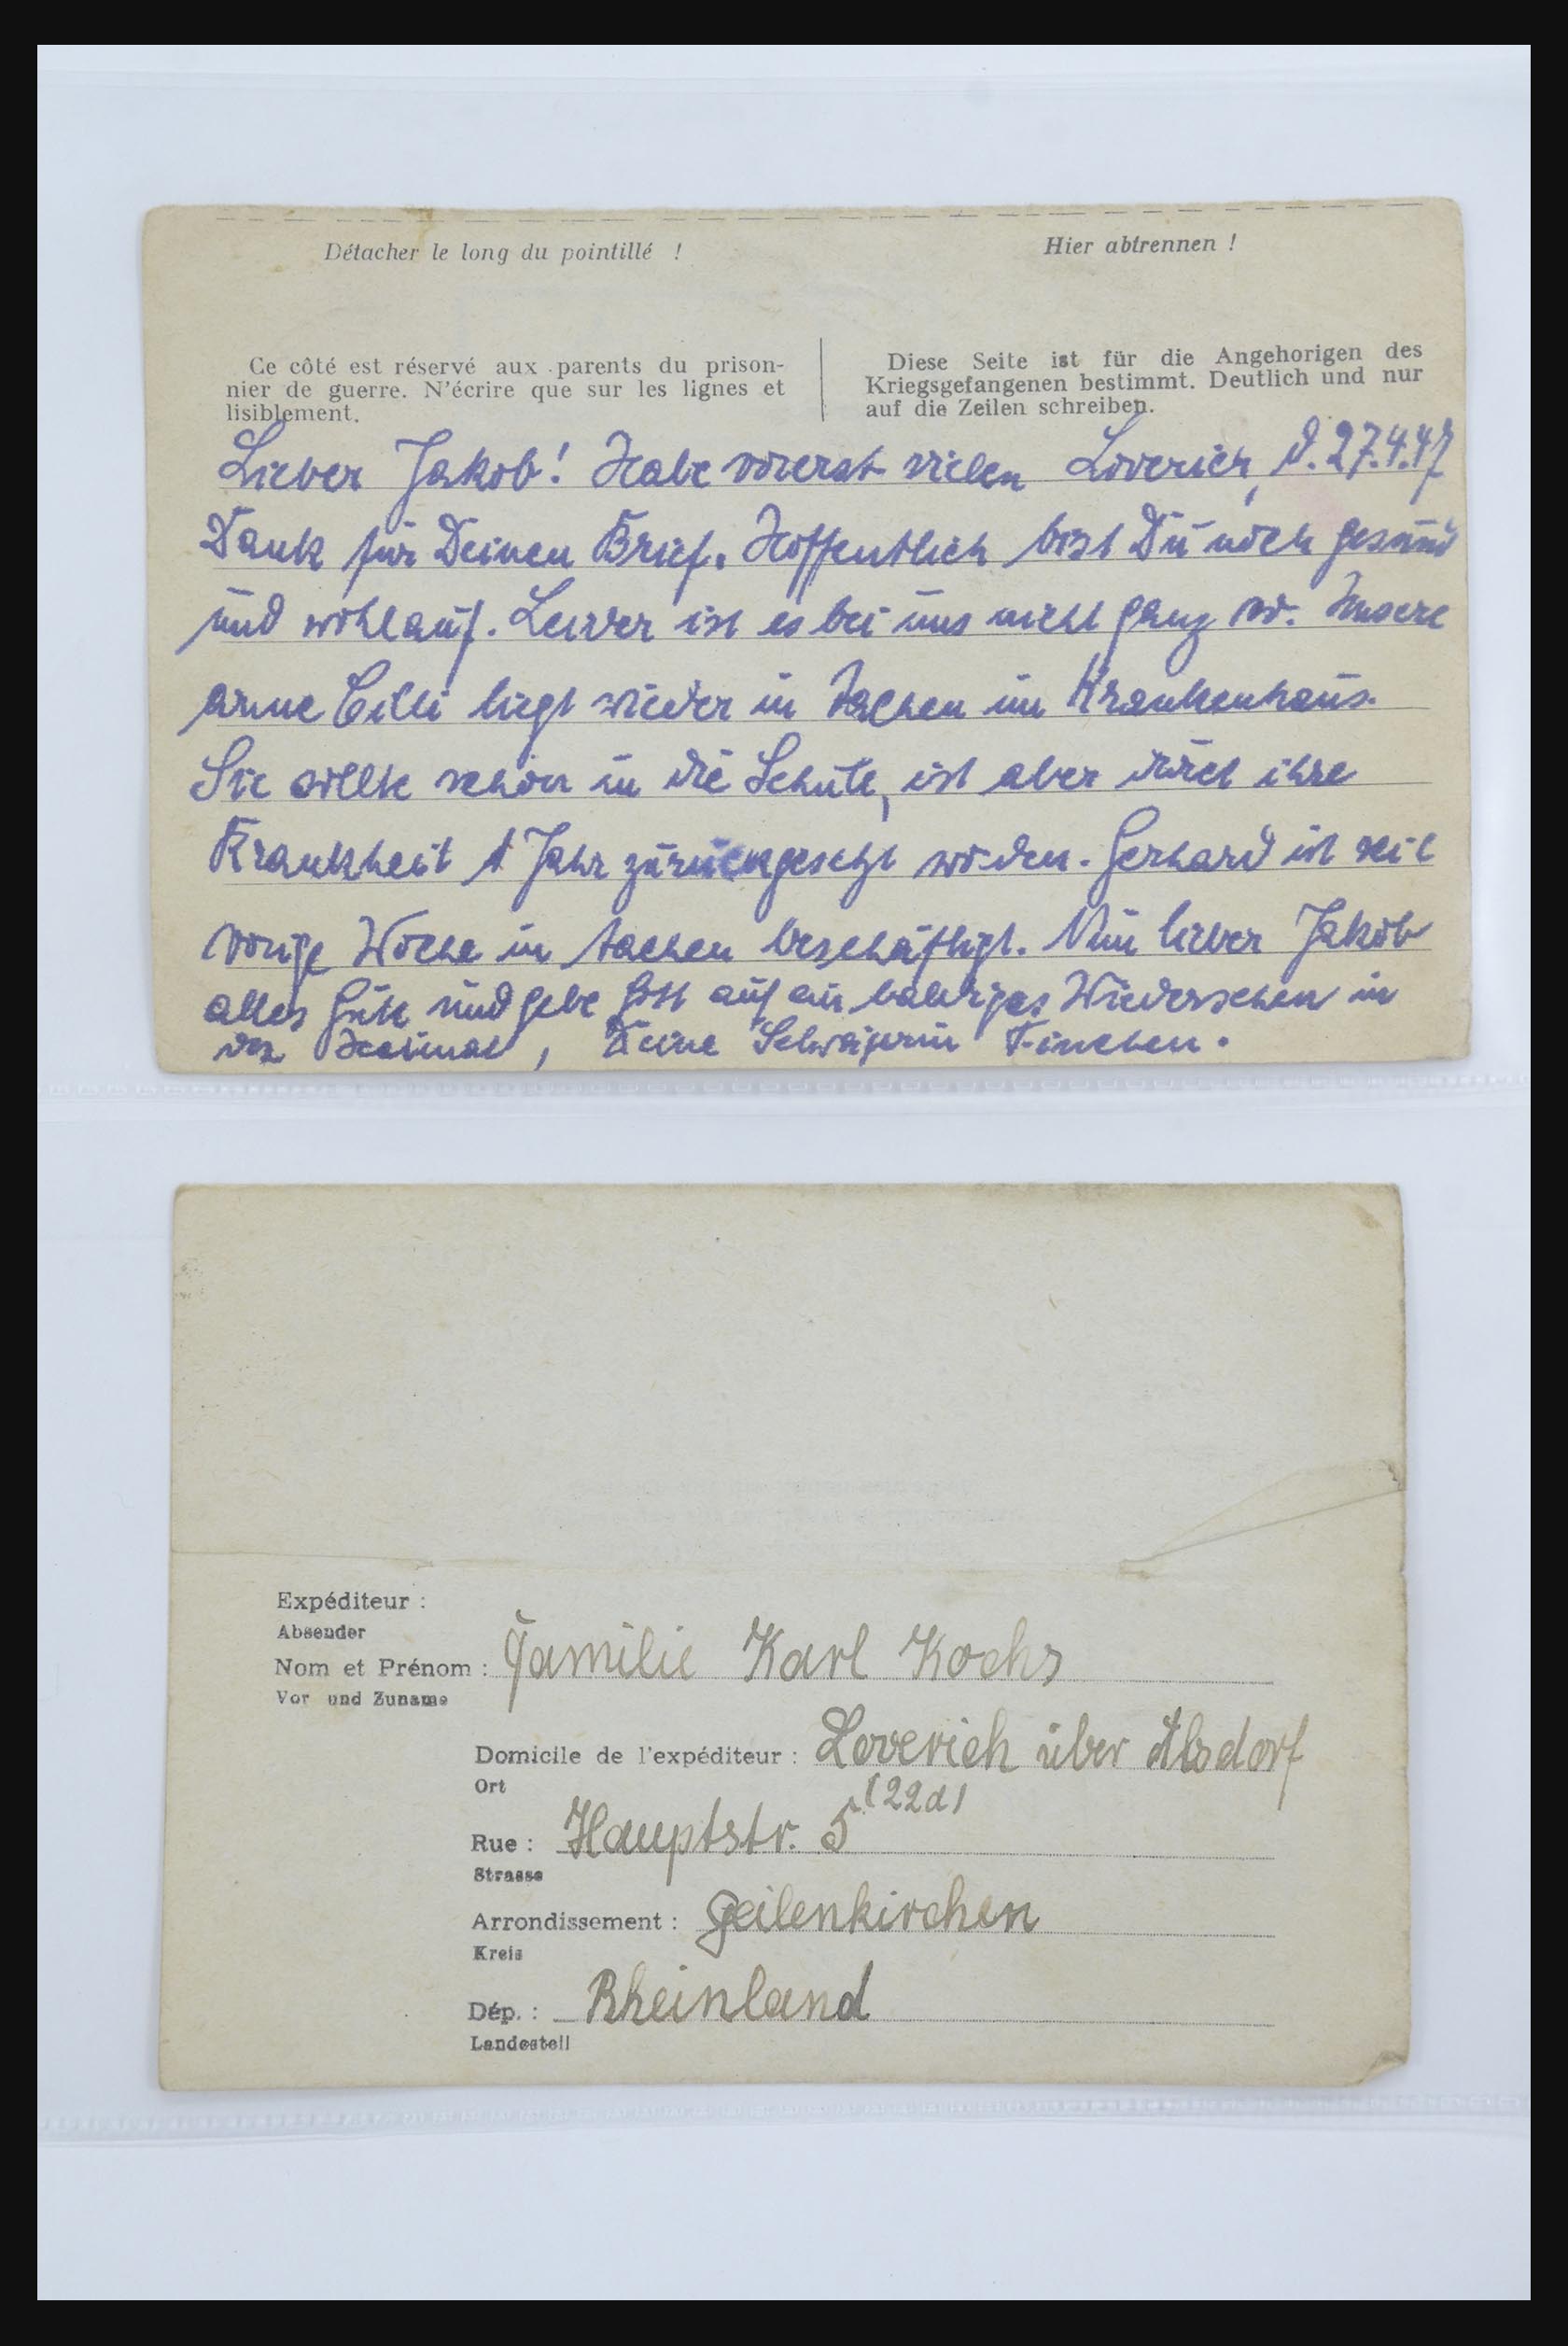 Détacher le long du pointillé !
Hier abtrennen !
Ce côté est réservé aux parents du prison-
nier de guerre. N'écrire que sur les lignes et
lisiblement.
Diese Seite ist für die Angehorigen des
Kriegsgefangenen bestimmt. Deutlich und nur
auf die Zeilen schreiben.
Loverich, d. 27.4.47
Lieber Jakob! Habe vorerst vielen
Dank für Deinen Brief. Hoffentlich bist Du noch gesund
und wohlauf. Leider ist es bei uns nicht ganz so. Unsere
arme Cilli liegt wieder in Aachen im Krankenhaus.
Sie sollte schon in die Schule, ist aber durch ihre
Krankheit 1 Jahr zurückgesetzt worden. Gerhard ist seit
vorige Woche in Aachen beschäftigt. Nun lieber Jakob
alles Gute und gebe Gott auf ein baldiges Wiedersehen in
der Heimat, Deine Schwägerin Finchen.
Expéditeur :
Absender
Nom et Prénom : Familie Karl Kochs
Vor und Zuname
Domicile de l'expéditeur : Loverich über Alsdorf
Ort
(22a)
Rue : Hauptstr. 5
Strasse
Arrondissement : Geilenkirchen
Kreis
Dép. : Rheinland
Landesteil